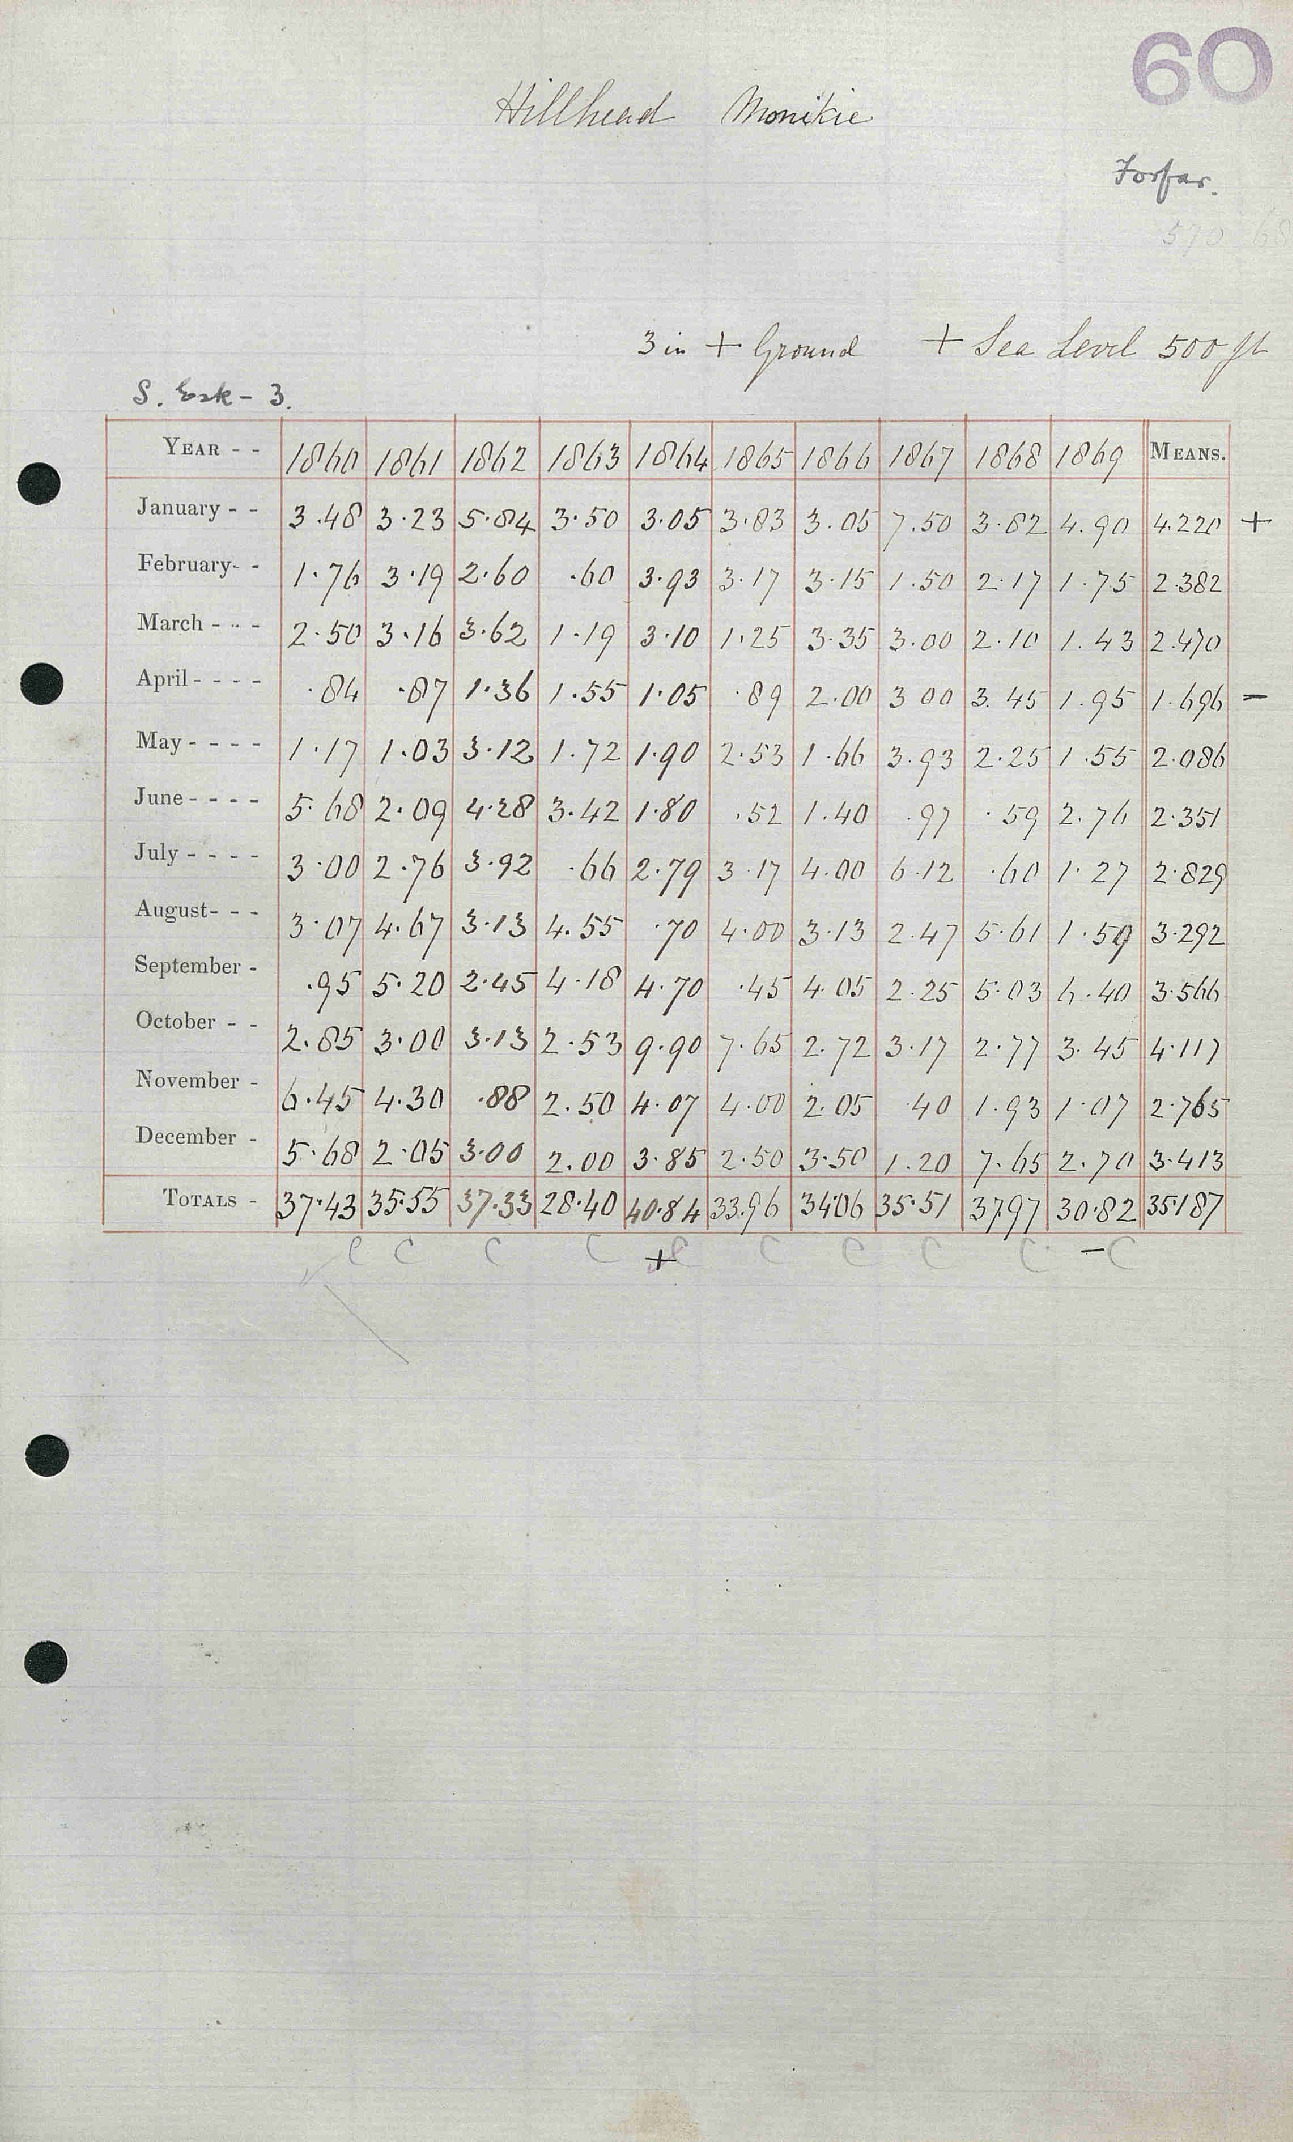 60
Hillhead Monikie
Forfar.
570 68
3 in + Ground + Sea Level 500 ft
S. Esk - 3.
YEAR - - 1860 1861 1862 1863 1864 1865 1866 1867 1868 1869 MEANS.
January - - 3.48 3.23 5.84 3.50 3.05 3.83 3.05 7.50 3.82 4.90 4.220 +
February- - 1.76 3.19 2.60 .60 3.93 3.17 3.15 1.50 2.17 1.75 2.382
March - - - 2.50 3.16 3.62 1.19 3.10 1.25 3.35 3.00 2.10 1.43 2.470
April - - - - .84 .87 1.36 1.55 1.05 .89 2.00 3 00 3.45 1.95 1.696 -
May - - - - 1.17 1.03 3.12 1.72 1.90 2.53 1.66 3.93 2.25 1.55 2.086
June - - - - 5.68 2.09 4.28 3.42 1.80 .52 1.40 .97 .59 2.76 2.351
July - - - - 3.00 2.76 3.92 .66 2.79 3.17 4.00 6.12 .60 1.27 2.829
August- - - 3.07 4.67 3.13 4.55 .70 4.00 3.13 2.47 5.61 1.59 3.292
September - .95 5.20 2.45 4.18 4.70 .45 4.05 2.25 5.03 6.40 3.566
October - - 2.85 3.00 3.13 2.53 9.90 7.65 2.72 3.17 2.77 3.45 4.117
November - 6.45 4.30 .88 2.50 4.07 4.00 2.05 .40 1.93 1.07 2.765
December - 5.68 2.05 3.00 2.00 3.85 2.50 3.50 1.20 7.65 2.70 3.413
TOTALS - 37.43 35.55 37.33 28.40 40.84 33.96 34.06 35.51 37.97 30.82 35.187
C C C C + C C C C C - C